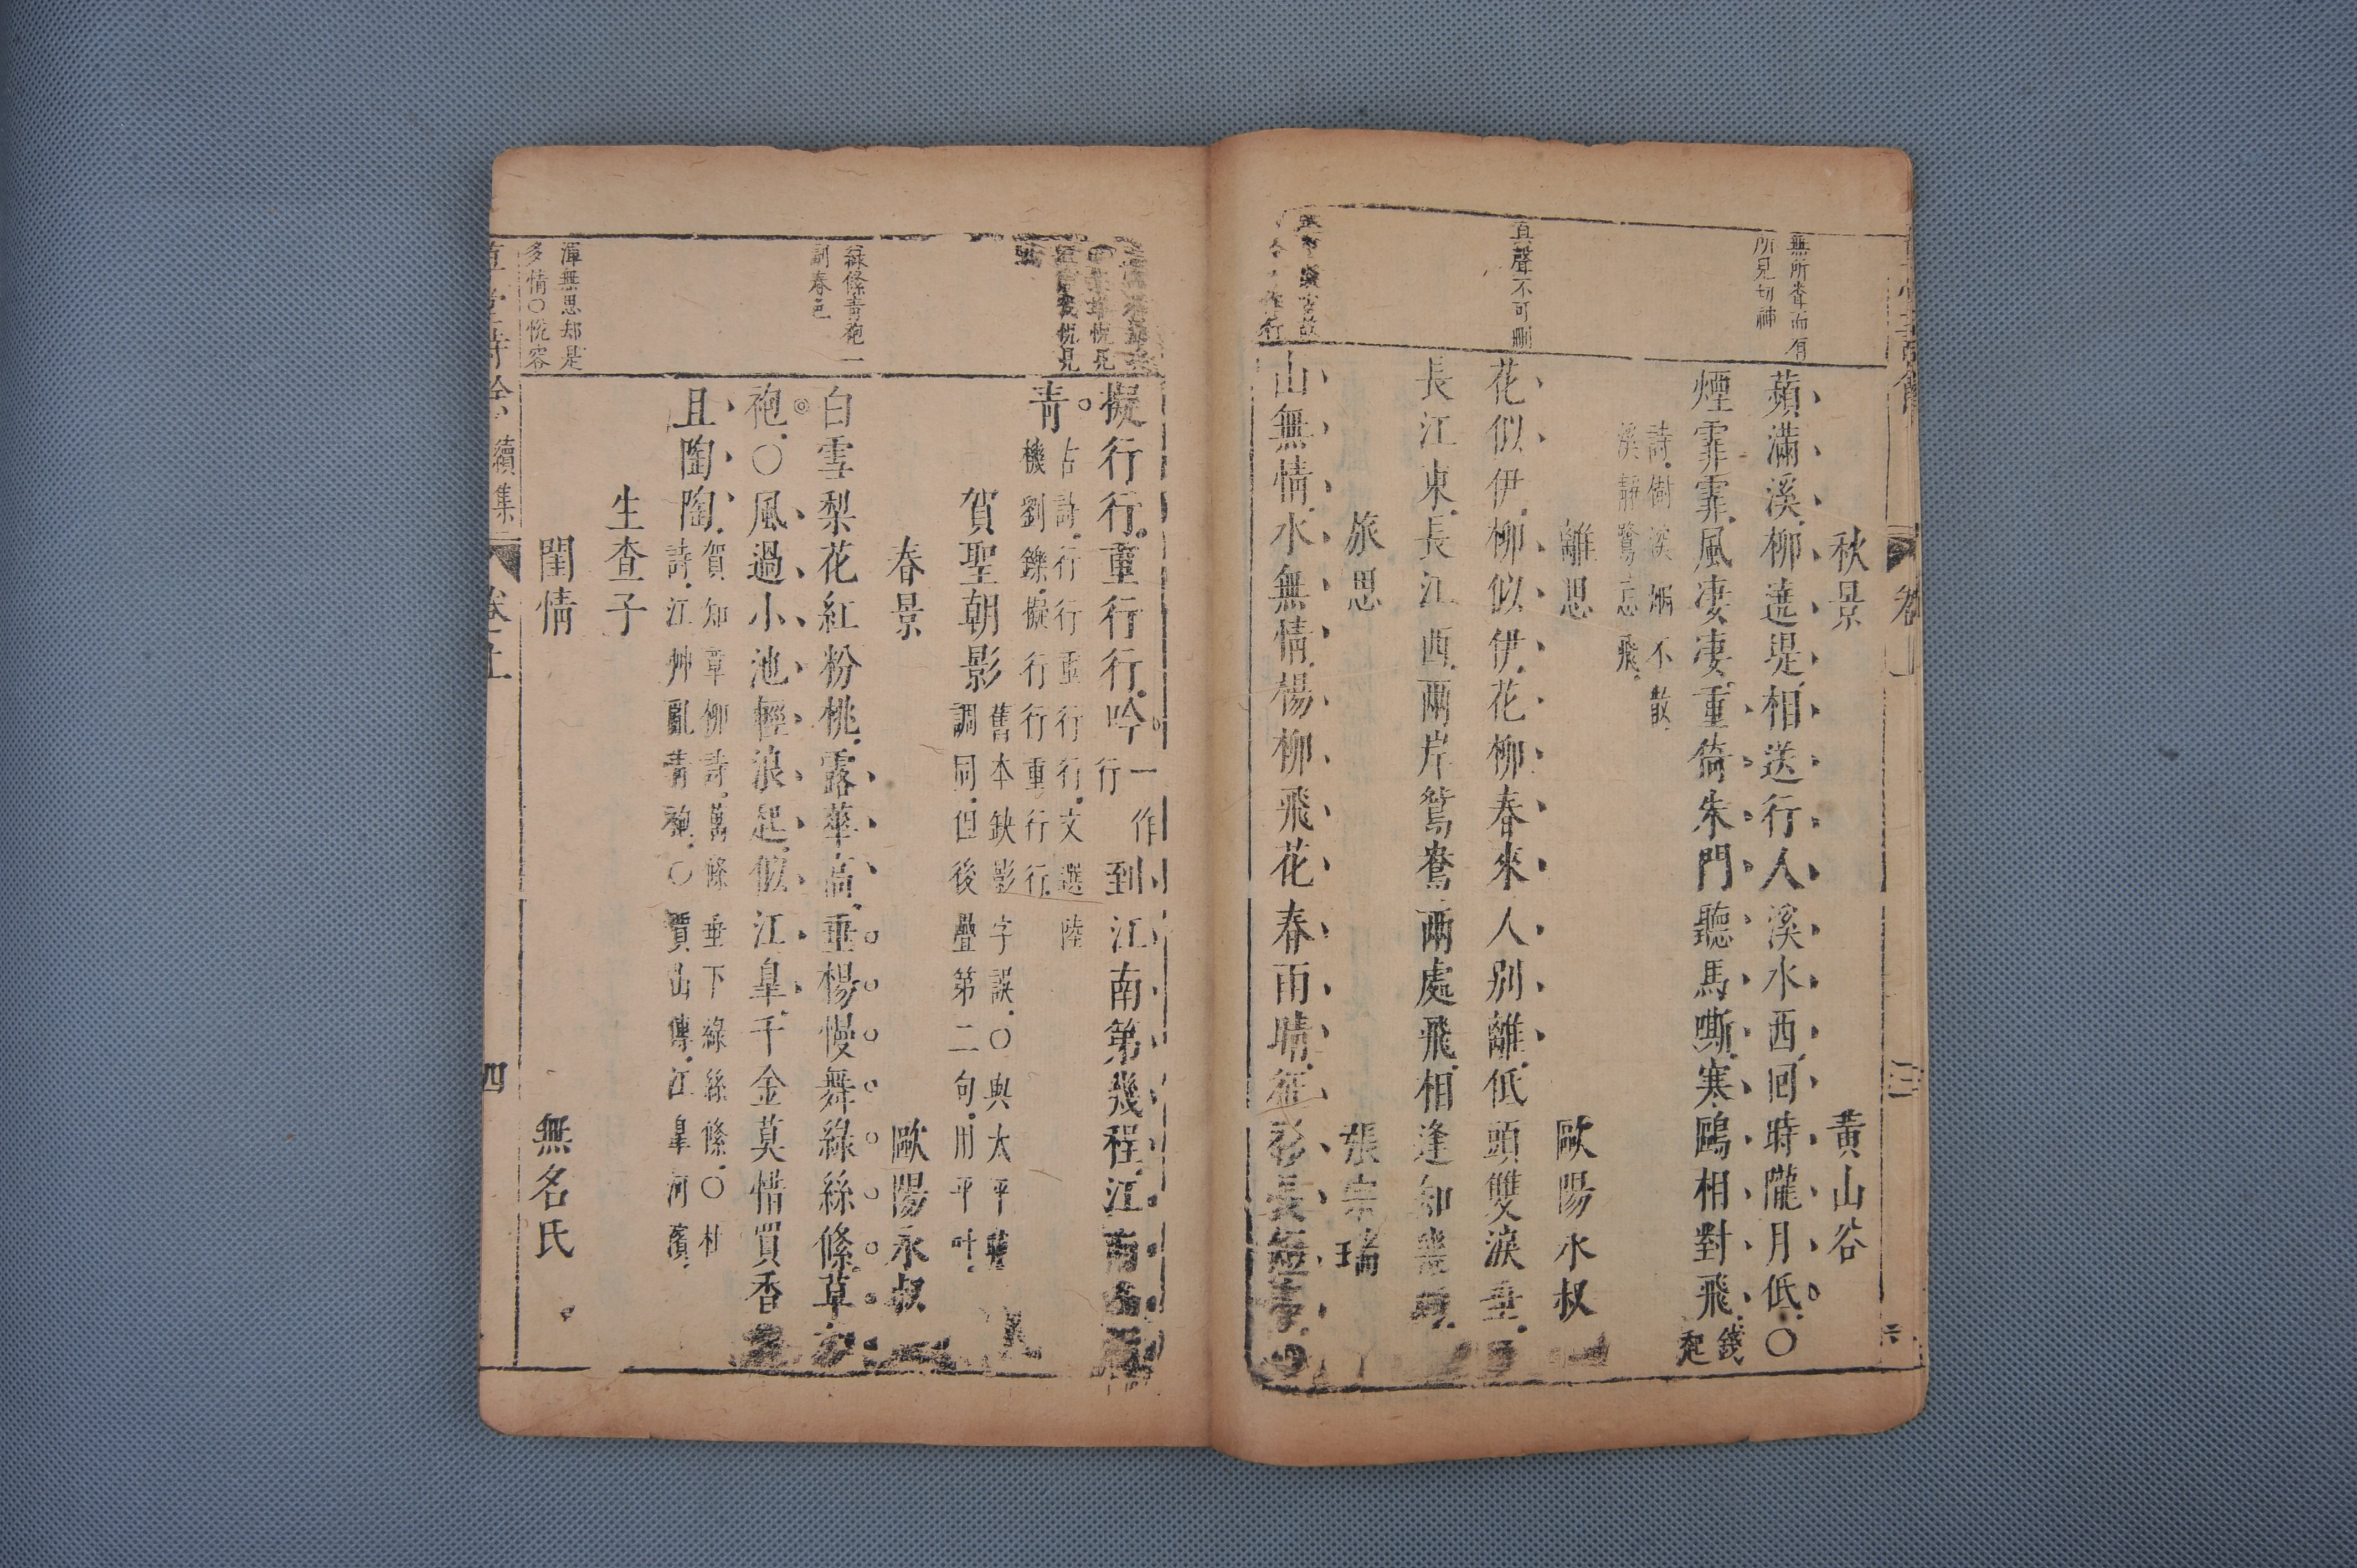 無所沓而有
所見切神
真聲不可刪
秋景 黃山谷
蘋滿溪柳遶堤相送行人溪水西囘時隴月低〇
煙霏霏風凄凄重倚朱門聽馬嘶寒鷗相對飛 錢起
詩樹深烟不散
溪靜鷺忘飛
離思 歐陽永叔
花似伊柳似伊花柳春來人別離低頭雙淚垂
長江東長江西兩岸鴛鴦兩處飛相逢知幾
旅思 張宗瑞
山無情水無情楊柳飛花春雨晴征衫長短亭
擬行行重行行吟 一作行 到江南第幾程江南
青 占詩行行重行行文選陸
機劉鑠擬行行重行行
賀聖朝影 舊本缺影字誤〇與太平
調同但後疊第二句用平叶
春景 歐陽永叔
綠條青袍一
副春色
白雪梨花紅粉桃露華高垂楊慢舞綠絲條草
袍〇風過小池輕浪起似江臯千金莫惜買香
且陶陶 賀知章柳詩萬條垂下綠絲絛〇杜
詩江艸亂青袍〇賈山傳江臯河濱
生查子
渾無思却是
多情〇恍容
閨情 無名氏
續集 卷上 四